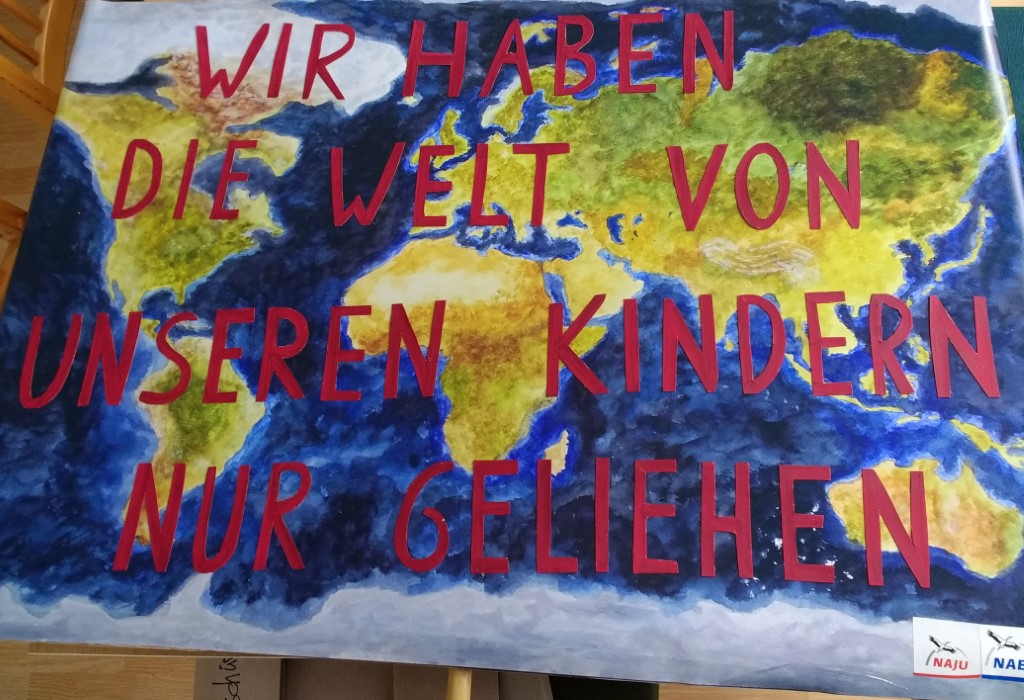 WIR HABEN
DIE WELT VON
UNSEREN KINDERN
NUR GELIEHEN
NAJU